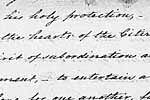 his holy protection, –
the hearts of the Citiz
irit of subordination a
ment, – to entertain a
for one another, fo